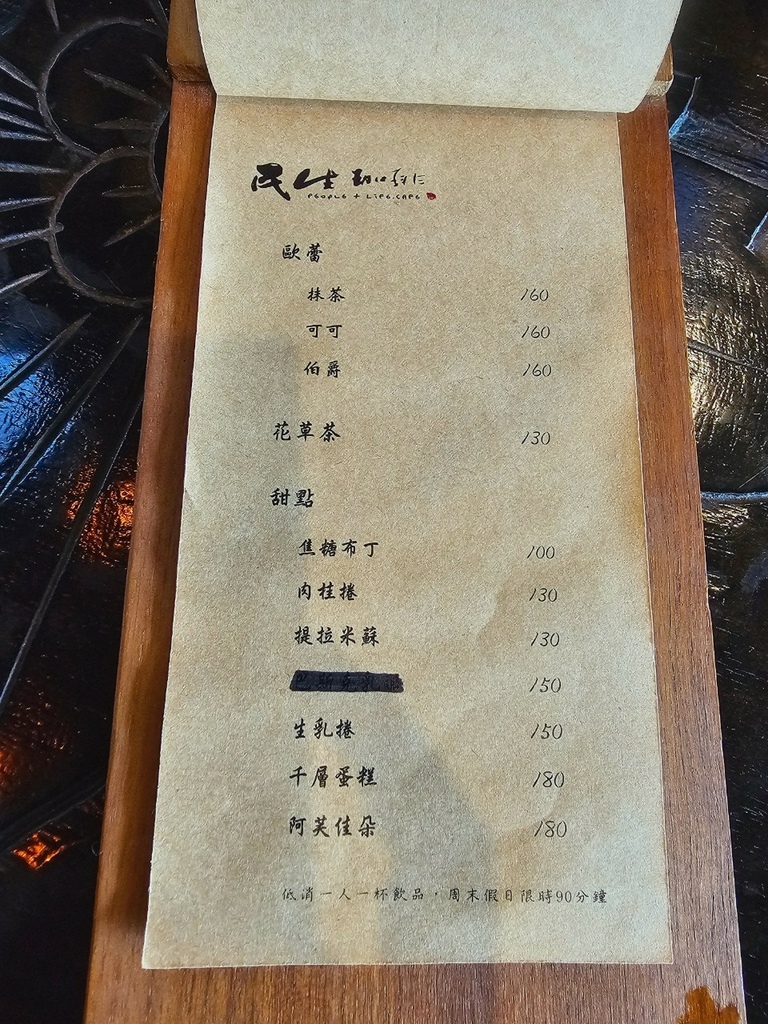 民生 珈琲行
PEOPLE + LIFE.CAFE
歐蕾
抹茶 160
可可 160
伯爵 160
花草茶 130
甜點
焦糖布丁 100
肉桂捲 130
提拉米蘇 130
150
生乳捲 150
千層蛋糕 180
阿芙佳朵 180
低消一人一杯飲品，周末假日限時90分鐘